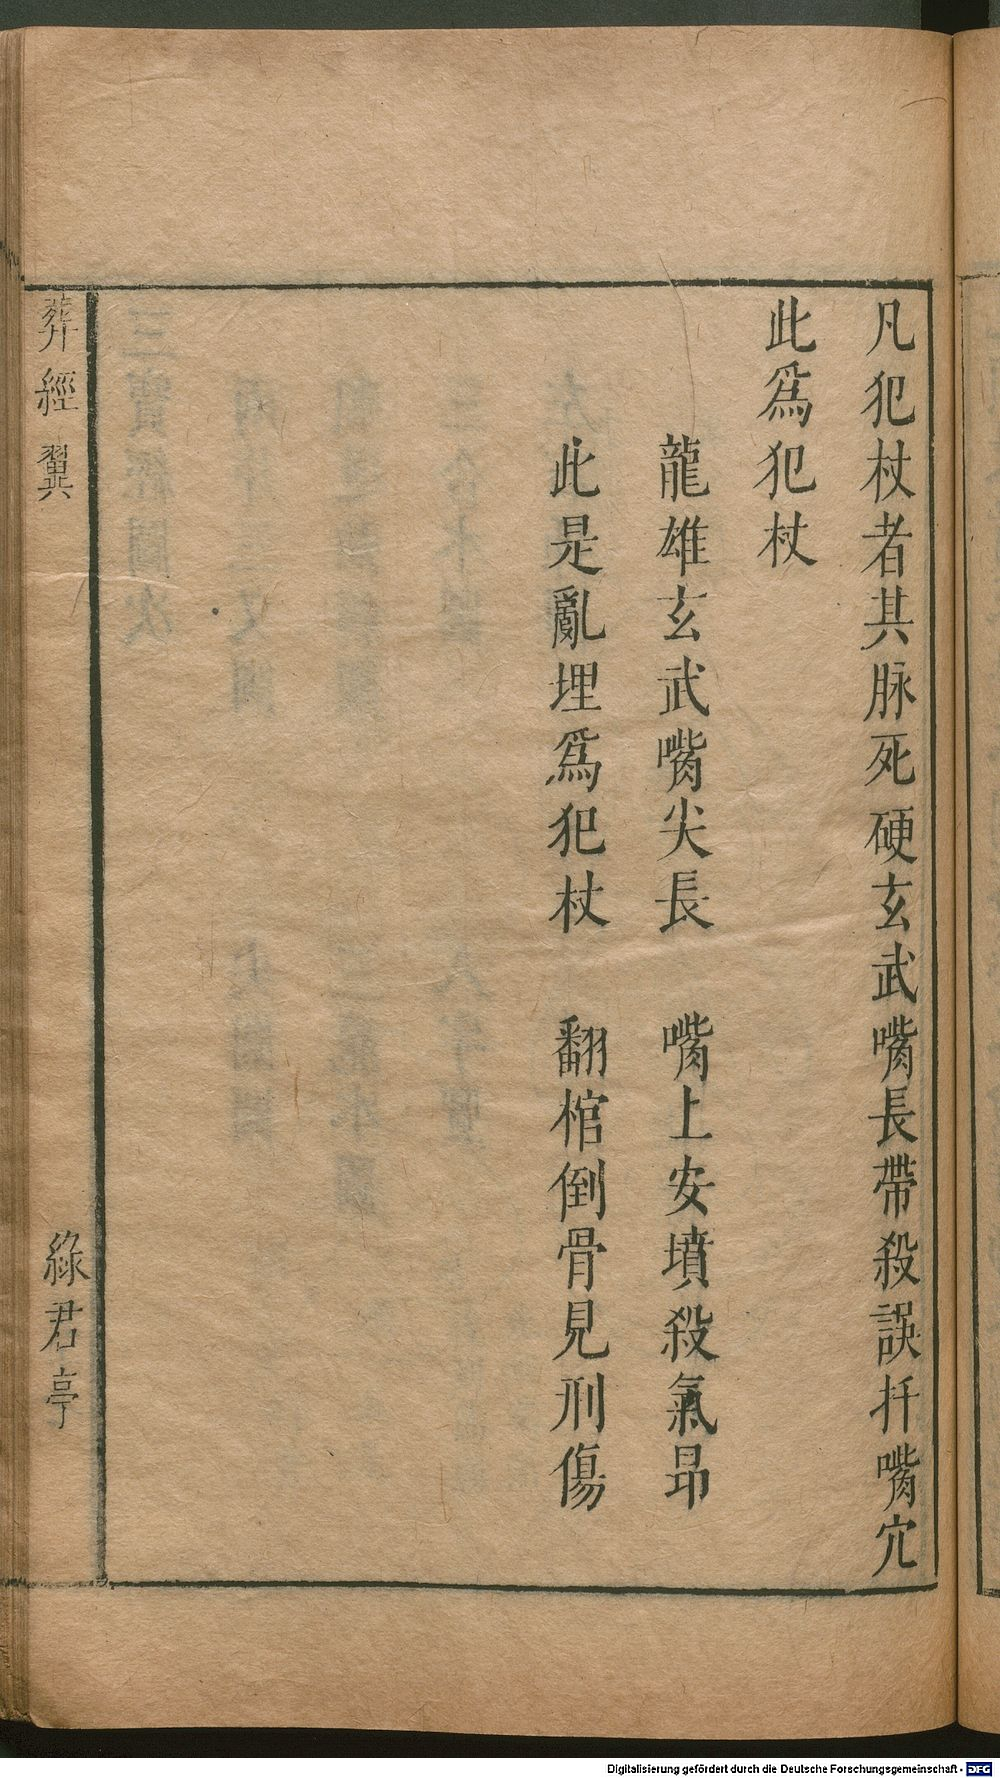 凡犯杖者其脉死硬玄武嘴長帶殺誤扦嘴穴
此爲犯杖
龍雄玄武嘴尖長　嘴上安墳殺氣昂
此是亂埋爲犯杖　翻棺倒骨見刑傷
葬經翼　綠君亭
Digitalisierung gefördert durch die Deutsche Forschungsgemeinschaft - DFG